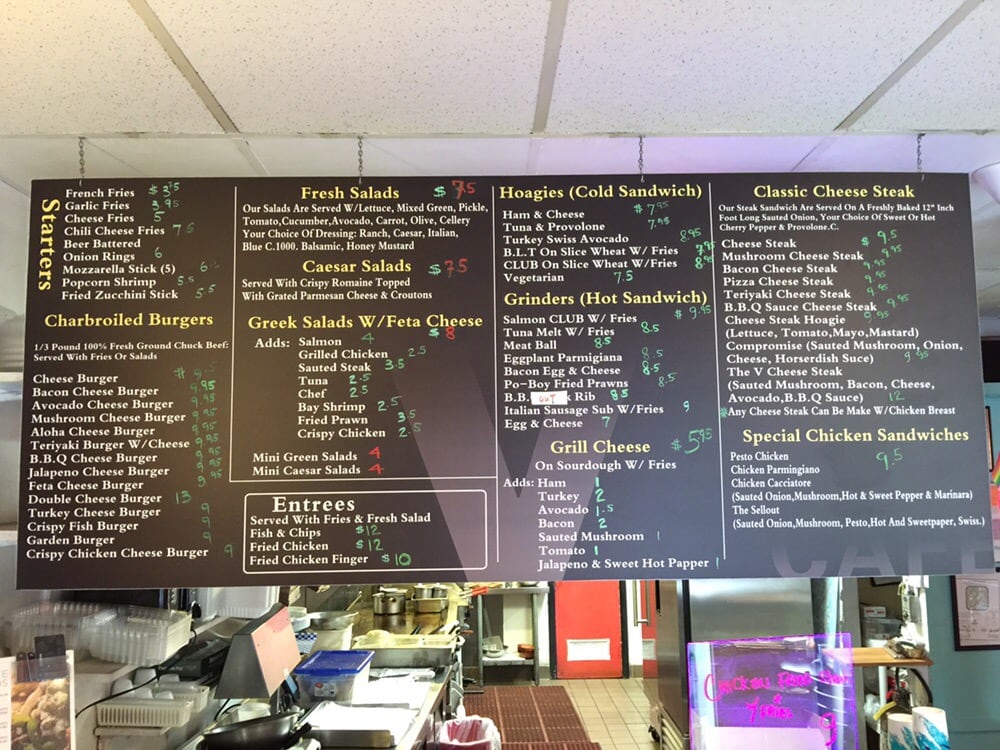 Starters
French Fries $ 3.75
Garlic Fries 3.95
Cheese Fries 5
Chili Cheese Fries 7.5
Beer Battered
Onion Rings 6
Mozzarella Stick (5) 6.
Popcorn Shrimp 5.5
Fried Zucchini Stick 5.5
Charbroiled Burgers
1/3 Pound 100% Fresh Ground Chuck Beef:
Served With Fries Or Salads
Cheese Burger $ 9.5
Bacon Cheese Burger 9.95
Avocado Cheese Burger 9.95
Mushroom Cheese Burger 9.95
Aloha Cheese Burger 9.95
Teriyaki Burger W/Cheese 9.95
B.B.Q Cheese Burger 9.95
Jalapeno Cheese Burger 9.95
Feta Cheese Burger 9.95
Double Cheese Burger 13
Turkey Cheese Burger 9
Crispy Fish Burger 9
Garden Burger 9
Crispy Chicken Cheese Burger 9
Fresh Salads $ 7.5
Our Salads Are Served W/Lettuce, Mixed Green, Pickle,
Tomato,Cucumber,Avocado, Carrot, Olive, Cellery
Your Choice Of Dressing: Ranch, Caesar, Italian,
Blue C.1000. Balsamic, Honey Mustard
Caesar Salads $7.5
Served With Crispy Romaine Topped
With Grated Parmesan Cheese & Croutons
Greek Salads W/Feta Cheese $ 8
Adds: Salmon 4
Grilled Chicken 2.5
Sauted Steak 3.5
Tuna 2.5
Chef 2.5
Bay Shrimp 2.5
Fried Prawn 3.5
Crispy Chicken 2.5
Mini Green Salads 4
Mini Caesar Salads 4
Entrees
Served With Fries & Fresh Salad
Fish & Chips $12
Fried Chicken $12
Fried Chicken Finger $10
Hoagies (Cold Sandwich)
Ham & Cheese $7.95
Tuna & Provolone 7.95
Turkey Swiss Avocado 8.95
B.L.T On Slice Wheat W/ Fries 7.95
CLUB On Slice Wheat W/Fries 8.95
Vegetarian 7.5
Grinders (Hot Sandwich)
Salmon CLUB W/ Fries $ 9.95
Tuna Melt W/ Fries 8.5
Meat Ball 8.5
Eggplant Parmigiana 8.5
Bacon Egg & Cheese 8.5
Po-Boy Fried Prawns 8.5
B.B. out k Rib 8.5
Italian Sausage Sub W/Fries 9
Egg & Cheese 7
Grill Cheese $5.95
On Sourdough W/ Fries
Adds: Ham 1
Turkey 2
Avocado 1.5
Bacon 2
Sauted Mushroom 1
Tomato 1
Jalapeno & Sweet Hot Papper 1
Classic Cheese Steak
Our Steak Sandwich Are Served On A Freshly Baked 12" Inch
Foot Long Sauted Onion, Your Choice Of Sweet Or Hot
Cherry Pepper & Provolone.C.
Cheese Steak $ 9.5
Mushroom Cheese Steak 9.95
Bacon Cheese Steak 9.95
Pizza Cheese Steak 9.95
Teriyaki Cheese Steak 9.95
B.B.Q Sauce Cheese Steak 9.95
Cheese Steak Hoagie 9.95
(Lettuce, Tomato,Mayo,Mastard)
Compromise (Sauted Mushroom, Onion,
Cheese, Horserdish Suce) 9.95
The V Cheese Steak
(Sauted Mushroom, Bacon, Cheese,
Avocado,B.B.Q Sauce) 12
*Any Cheese Steak Can Be Make W/Chicken Breast
Special Chicken Sandwiches
Pesto Chicken 9.5
Chicken Parmingiano
Chicken Cacciatore
(Sauted Onion,Mushroom,Hot & Sweet Pepper & Marinara)
The Sellout
(Sauted Onion,Mushroom, Pesto,Hot And Sweetpaper, Swiss.)
V CAFE
Chicken
9